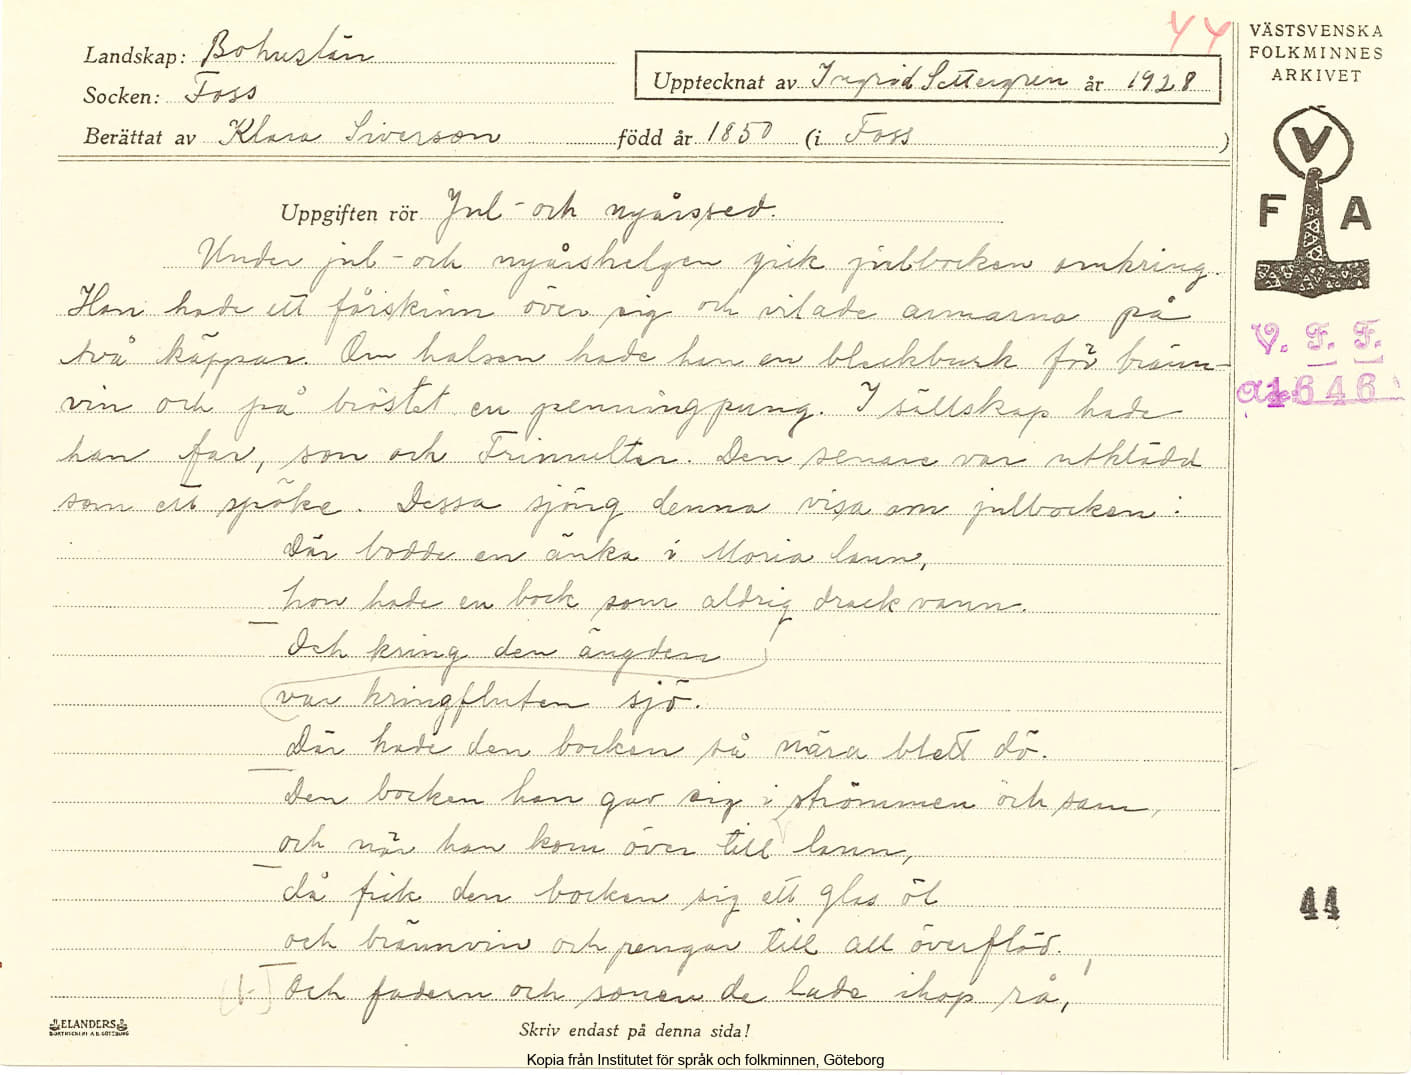 44
Landskap: Bohuslän
Socken: Foss
Upptecknat av Ingrid Settergren år 1928
Berättat av Klara Siverson född år 1850 (i Foss )
VÄSTSVENSKA
FOLKMINNES
ARKIVET
V
F A
V. F. F.
1646
44
Uppgiften rör Jul- och nyårssed.
Under jul- och nyårshelgen gick julbocken omkring.
Han hade ett fårskinn över sig och vilade armarna på
två käppar. Om halsen hade han en bleckburk för bränn-
vin och på bröstet en penningpung. I sällskap hade
han far, son och Frimulter. Den senare var utklädd
som ett spöke. Dessa sjöng denna visa om julbocken:
Där bodde en änka i Moria lann,
hon hade en bock som aldrig drack vann.
Och kring den ängden
var kringfluten sjö.
Där hade den bocken så nära blett dö.
Den bocken han gav sig i strömmen och sam,
och när han kom över till lann,
då fick den bocken sig ett glas öl
och brännvin och pengar till all överflöd.
Och fadern och sonen de lade ihop rå,
ELANDERS
BOKTRYCKERI A.B. GÖTEBORG
Skriv endast på denna sida!
Kopia från Institutet för språk och folkminnen, Göteborg